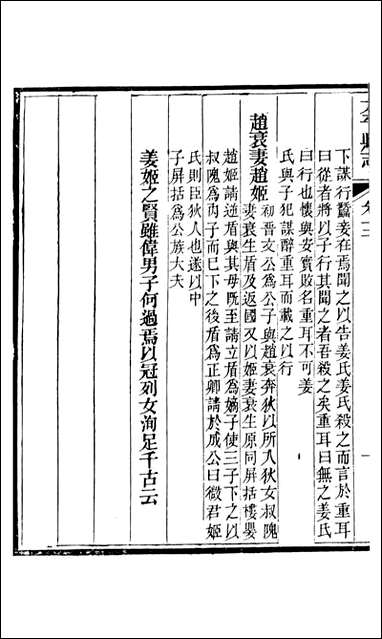 縣志
下謀行蠶妾在焉聞之以告姜氏姜氏殺之而言於重耳
曰從者將以子行其聞之者吾殺之矣重耳曰無之姜氏
曰行也懷與安實敗名重耳不可姜
氏與子犯謀醉重耳而載之以行
趙衰妻趙姬 初晉文公爲公子與趙衰奔狄以所入狄女叔隗
妻衰生盾及返國又以姬妻衰生原同屏括樓嬰
趙姬請逆盾與其母既至請立盾爲嫡子使三子下之以
叔隗爲內子而巳下之後盾爲正卿請於成公曰微君姬
氏則臣狄人也遂以中
子屏括爲公族大夫
姜姬之賢雖偉男子何過焉以冠列女洵足千古云